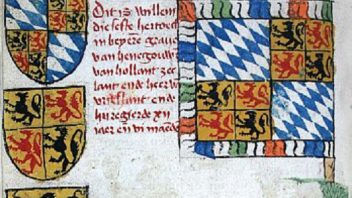 Dit is Willem
die seste hertoech
in beyere graue
van henegouwen
van hollant zee
lant ende heer van
vrieslant ende
hi regierde xij
iaer en vi maede